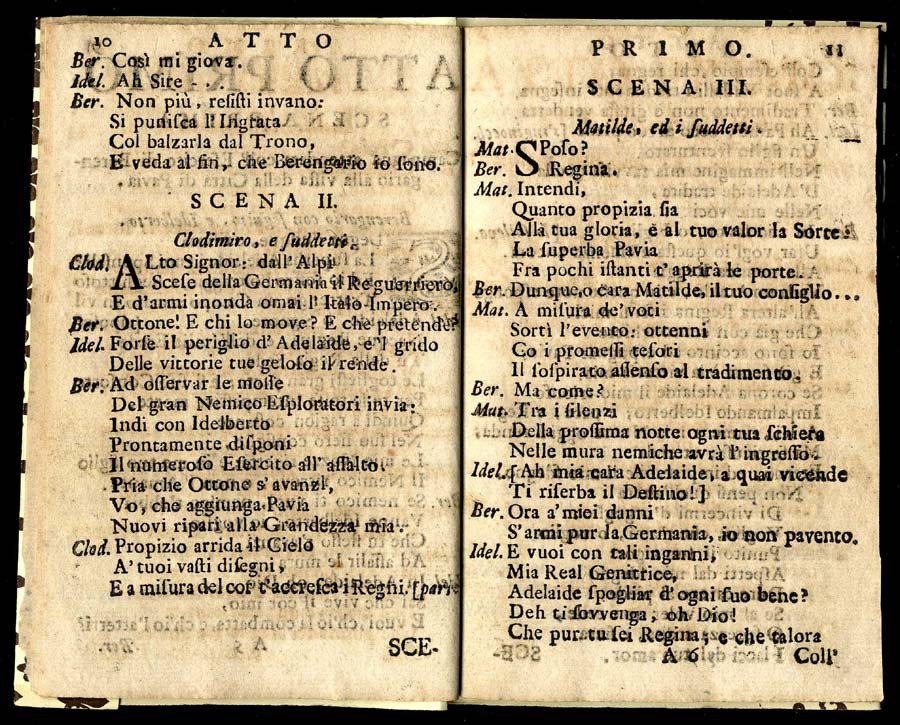 10 ATTO
Ber. Così mi giova.
Idel. Ah Sire . . .
Ber. Non più, resisti invano:
Si punisca l'Ingrata
Col balzarla dal Trono,
E veda al fin, che Berengario io sono.
SCENA II.
Clodimiro, e suddetti.
Clod. ALto Signor: dall'Alpi
Scese della Germania il Re guerriero,
E d'armi inonda omai l'Italo Impero.
Ber. Ottone! E chi lo move? E che pretende?
Idel. Forse il periglio d'Adelaide, e'l grido
Delle vittorie tue geloso il rende.
Ber. Ad osservar le mosse
Del gran Nemico Esploratori invia:
Indi con Idelberto
Prontamente disponi
Il numeroso Esercito all'assalto.
Pria che Ottone s'avanzi,
Vo, che aggiunga Pavia
Nuovi ripari alla Grandezza mia.
Clod. Propizio arrida il Cielo
A' tuoi vasti disegni,
E a misura del cor t'accresca i Regni. [parte
SCE-
PRIMO. 11
SCENA III.
Matilde, ed i suddetti.
Mat. SPoso?
Ber. Regina.
Mat. Intendi,
Quanto propizia sia
Alla tua gloria, e al tuo valor la Sorte:
La superba Pavia
Fra pochi istanti t'aprirà le porte.
Ber. Dunque, o cara Matilde, il tuo consiglio...
Mat. A misura de' voti
Sortì l'evento: ottenni
Co i promessi tesori
Il sospirato assenso al tradimento.
Ber. Ma come?
Mat. Tra i silenzi
Della prossima notte ogni tua schiera
Nelle mura nemiche avrà l'ingresso.
Idel. [Ah mia cara Adelaide, a quai vicende
Ti riserba il Destino!]
Ber. Ora a' miei danni
S'armi pur la Germania, io non pavento.
Idel. E vuoi con tali inganni,
Mia Real Genitrice,
Adelaide spogliar d'ogni suo bene?
Deh ti sovvenga, oh Dio!
Che pur tu sei Regina; e che talora
A 6 Coll'